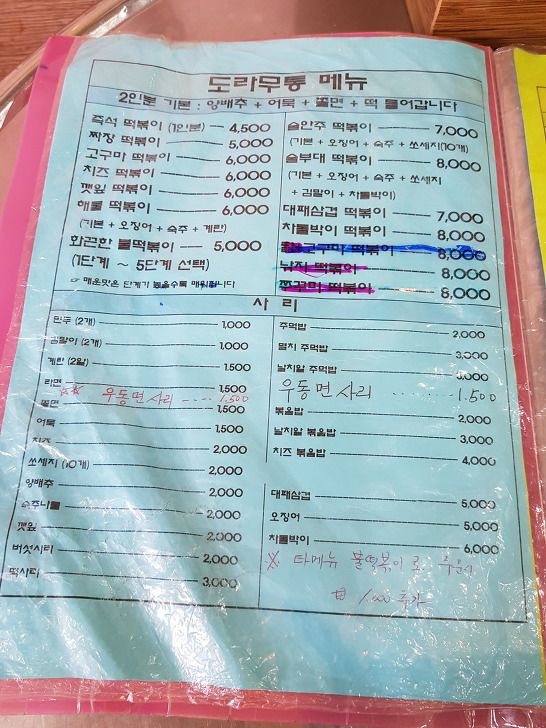 도라무통 메뉴
2인분 기본 : 양배추 + 어묵 + 쫄면 + 떡 들어갑니다
즉석 떡볶이 (1인분) 4,500
짜장 떡볶이 5,000
고구마 떡볶이 6,000
치즈 떡볶이 6,000
깻잎 떡볶이 6,000
해물 떡볶이 6,000
(기본 + 오징어 + 숙주 + 계란)
화끈한 불떡볶이 5,000
(1단계 ~ 5단계 선택)
☞ 매운맛은 단계가 높을수록 매워집니다
술안주 떡볶이 7,000
(기본 + 오징어 + 숙주 + 쏘세지(10개)
술부대 떡볶이 8,000
(기본 + 오징어 + 숙주 + 쏘세지
+ 김말이 + 차돌박이)
대패삼겹 떡볶이 7,000
차돌박이 떡볶이 8,000
고구마 떡볶이 8,000
낙지 떡볶이 8,000
쭈꾸미 떡볶이 8,000
사 리
만두 (2개) 1,000
김말이 (2개) 1,000
계란 (2알) 1,500
라면 1,500
우동면사리 ---- 1,500
쫄면 1,500
어묵 1,500
치즈 2,000
쏘세지 (10개) 2,000
양배추 2,000
숙주나물 2,000
깻잎 2,000
버섯사리 2,000
떡사리 3,000
주먹밥 2,000
멸치 주먹밥 3,000
날치알 주먹밥 3,000
우동면사리 ........ 1,500
볶음밥 2,000
날치알 볶음밥 3,000
치즈 볶음밥 4,000
대패삼겹 5,000
오징어 5,000
차돌박이 6,000
※ 타메뉴 불떡볶이로
추가